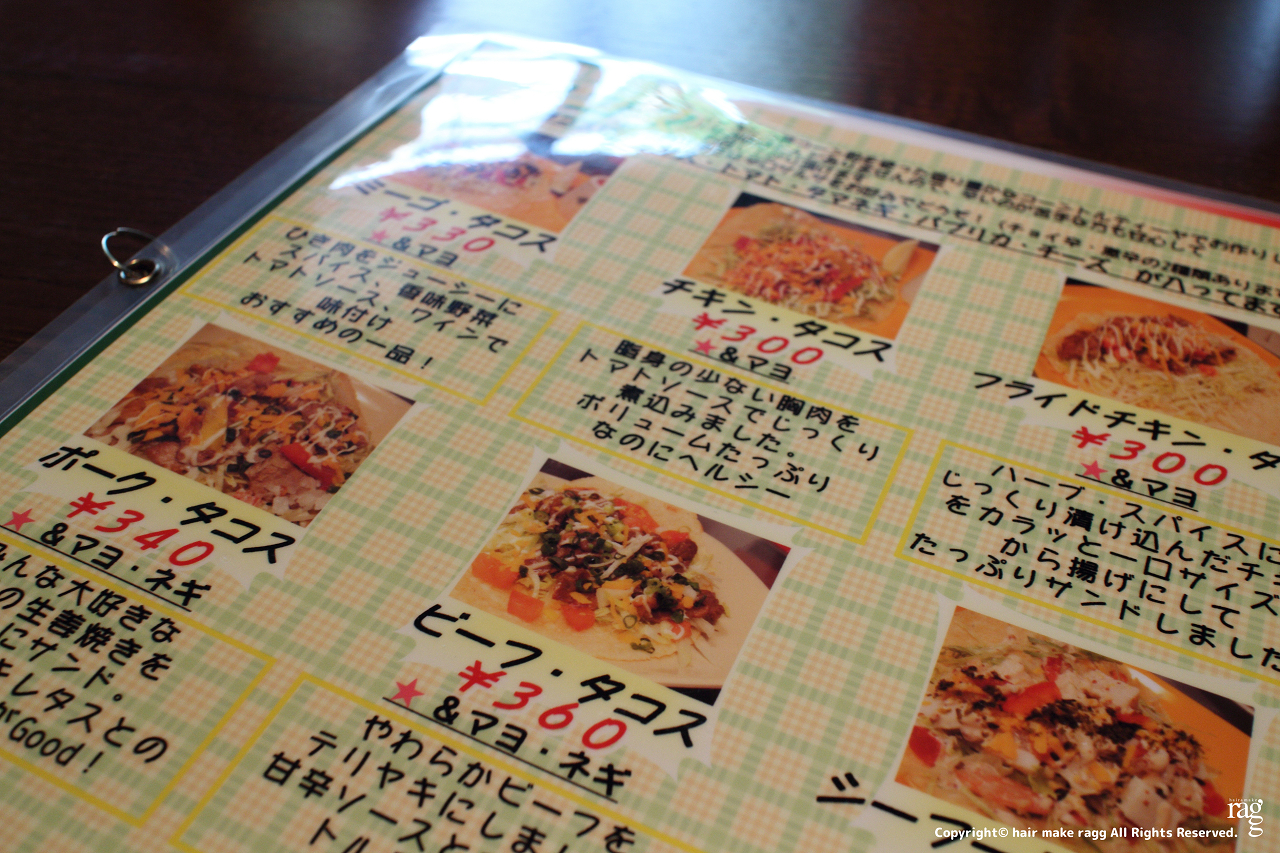 トマト・タマネギ・パプリカ・チーズ が入ってます
ミーゴ・タコス
¥330
★&マヨ
ひき肉をジューシーに
スパイス、香味野菜
トマトソース、ワインで
味付け
おすすめの一品！
チキン・タコス
¥300
★&マヨ
脂身の少ない胸肉を
トマトソースでじっくり
煮込みました。
ボリュームたっぷり
なのにヘルシー
フライドチキン・タ
¥300
★&マヨ
ハーブ・スパイスに
じっくり漬け込んだチ
をカラッと一口サイズ
から揚げにして
たっぷりサンドしました
ポーク・タコス
¥340
★&マヨ・ネギ
みんな大好きな
の生姜焼きを
にサンド。
キレタスとの
がGood！
ビーフ・タコス
¥360
★&マヨ・ネギ
やわらかビーフを
テリヤキにしま
甘辛ソースと
トル
シーフ
rag
g
Copyright© hair make ragg All Rights Reserved.